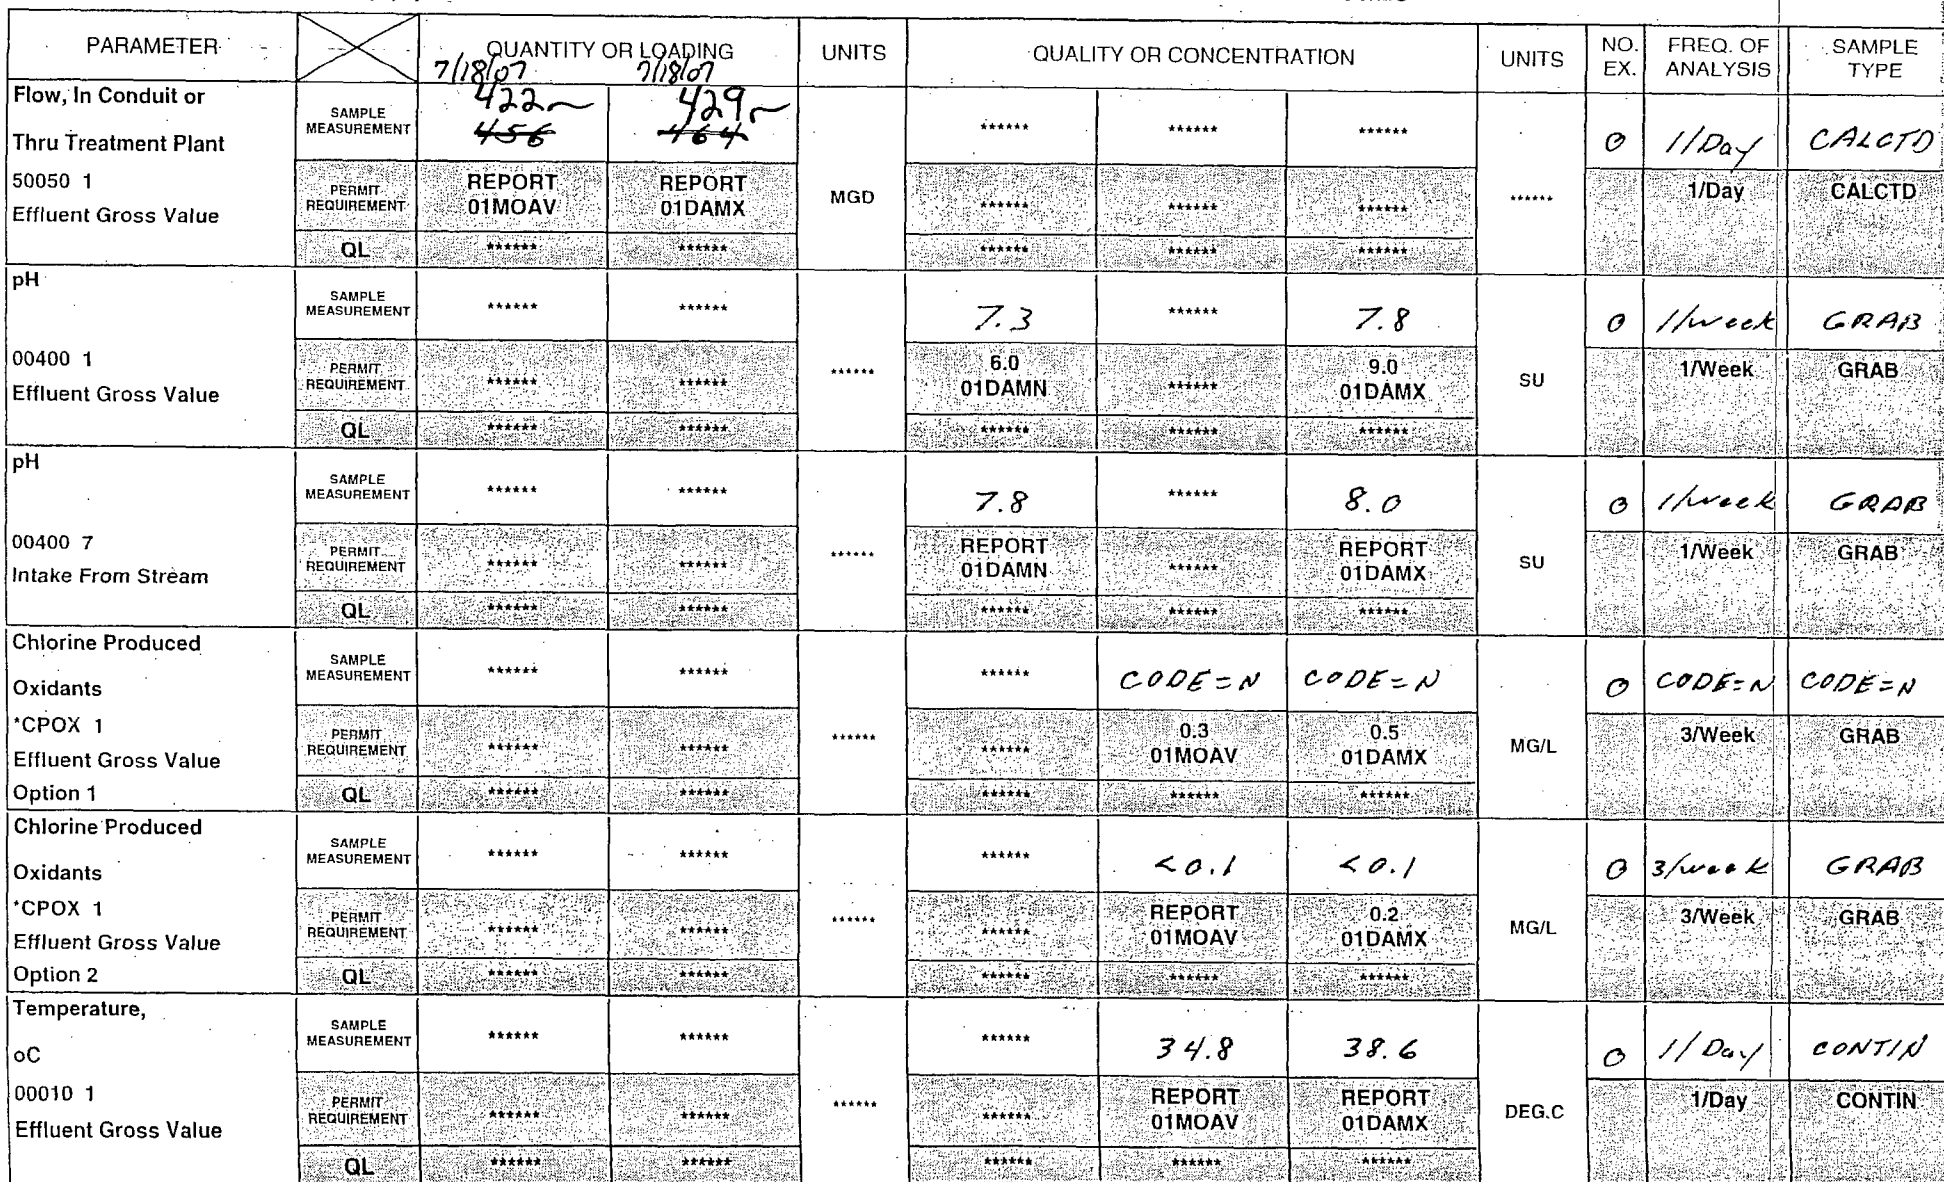 PARAMETER QUANTITY OR LOADING UNITS QUALITY OR CONCENTRATION UNITS NO. EX. FREQ. OF ANALYSIS SAMPLE TYPE
7/18/07 7/18/07
Flow, In Conduit or
Thru Treatment Plant
50050 1
Effluent Gross Value
SAMPLE MEASUREMENT 422 429 ****** ****** ****** 0 1/Day CALCTD
456 464
PERMIT REQUIREMENT REPORT 01MOAV REPORT 01DAMX MGD ****** ****** ****** ****** 1/Day CALCTD
QL ****** ****** ****** ****** ******
pH
00400 1
Effluent Gross Value
SAMPLE MEASUREMENT ****** ****** 7.3 ****** 7.8 0 1/week GRAB
PERMIT REQUIREMENT ****** ****** ****** 6.0 01DAMN ****** 9.0 01DAMX SU 1/Week GRAB
QL ****** ****** ****** ****** ******
pH
00400 7
Intake From Stream
SAMPLE MEASUREMENT ****** ****** 7.8 ****** 8.0 0 1/week GRAB
PERMIT REQUIREMENT ****** ****** ****** REPORT 01DAMN ****** REPORT 01DAMX SU 1/Week GRAB
QL ****** ****** ****** ****** ******
Chlorine Produced
Oxidants
*CPOX 1
Effluent Gross Value
Option 1
SAMPLE MEASUREMENT ****** ****** ****** CODE=N CODE=N 0 CODE=N CODE=N
PERMIT REQUIREMENT ****** ****** ****** ****** 0.3 01MOAV 0.5 01DAMX MG/L 3/Week GRAB
QL ****** ****** ****** ****** ******
Chlorine Produced
Oxidants
*CPOX 1
Effluent Gross Value
Option 2
SAMPLE MEASUREMENT ****** ****** ****** <0.1 <0.1 0 3/week GRAB
PERMIT REQUIREMENT ****** ****** ****** ****** REPORT 01MOAV 0.2 01DAMX MG/L 3/Week GRAB
QL ****** ****** ****** ****** ******
Temperature,
oC
00010 1
Effluent Gross Value
SAMPLE MEASUREMENT ****** ****** ****** 34.8 38.6 0 1/Day CONTIN
PERMIT REQUIREMENT ****** ****** ****** ****** REPORT 01MOAV REPORT 01DAMX DEG.C 1/Day CONTIN
QL ****** ****** ****** ****** ******